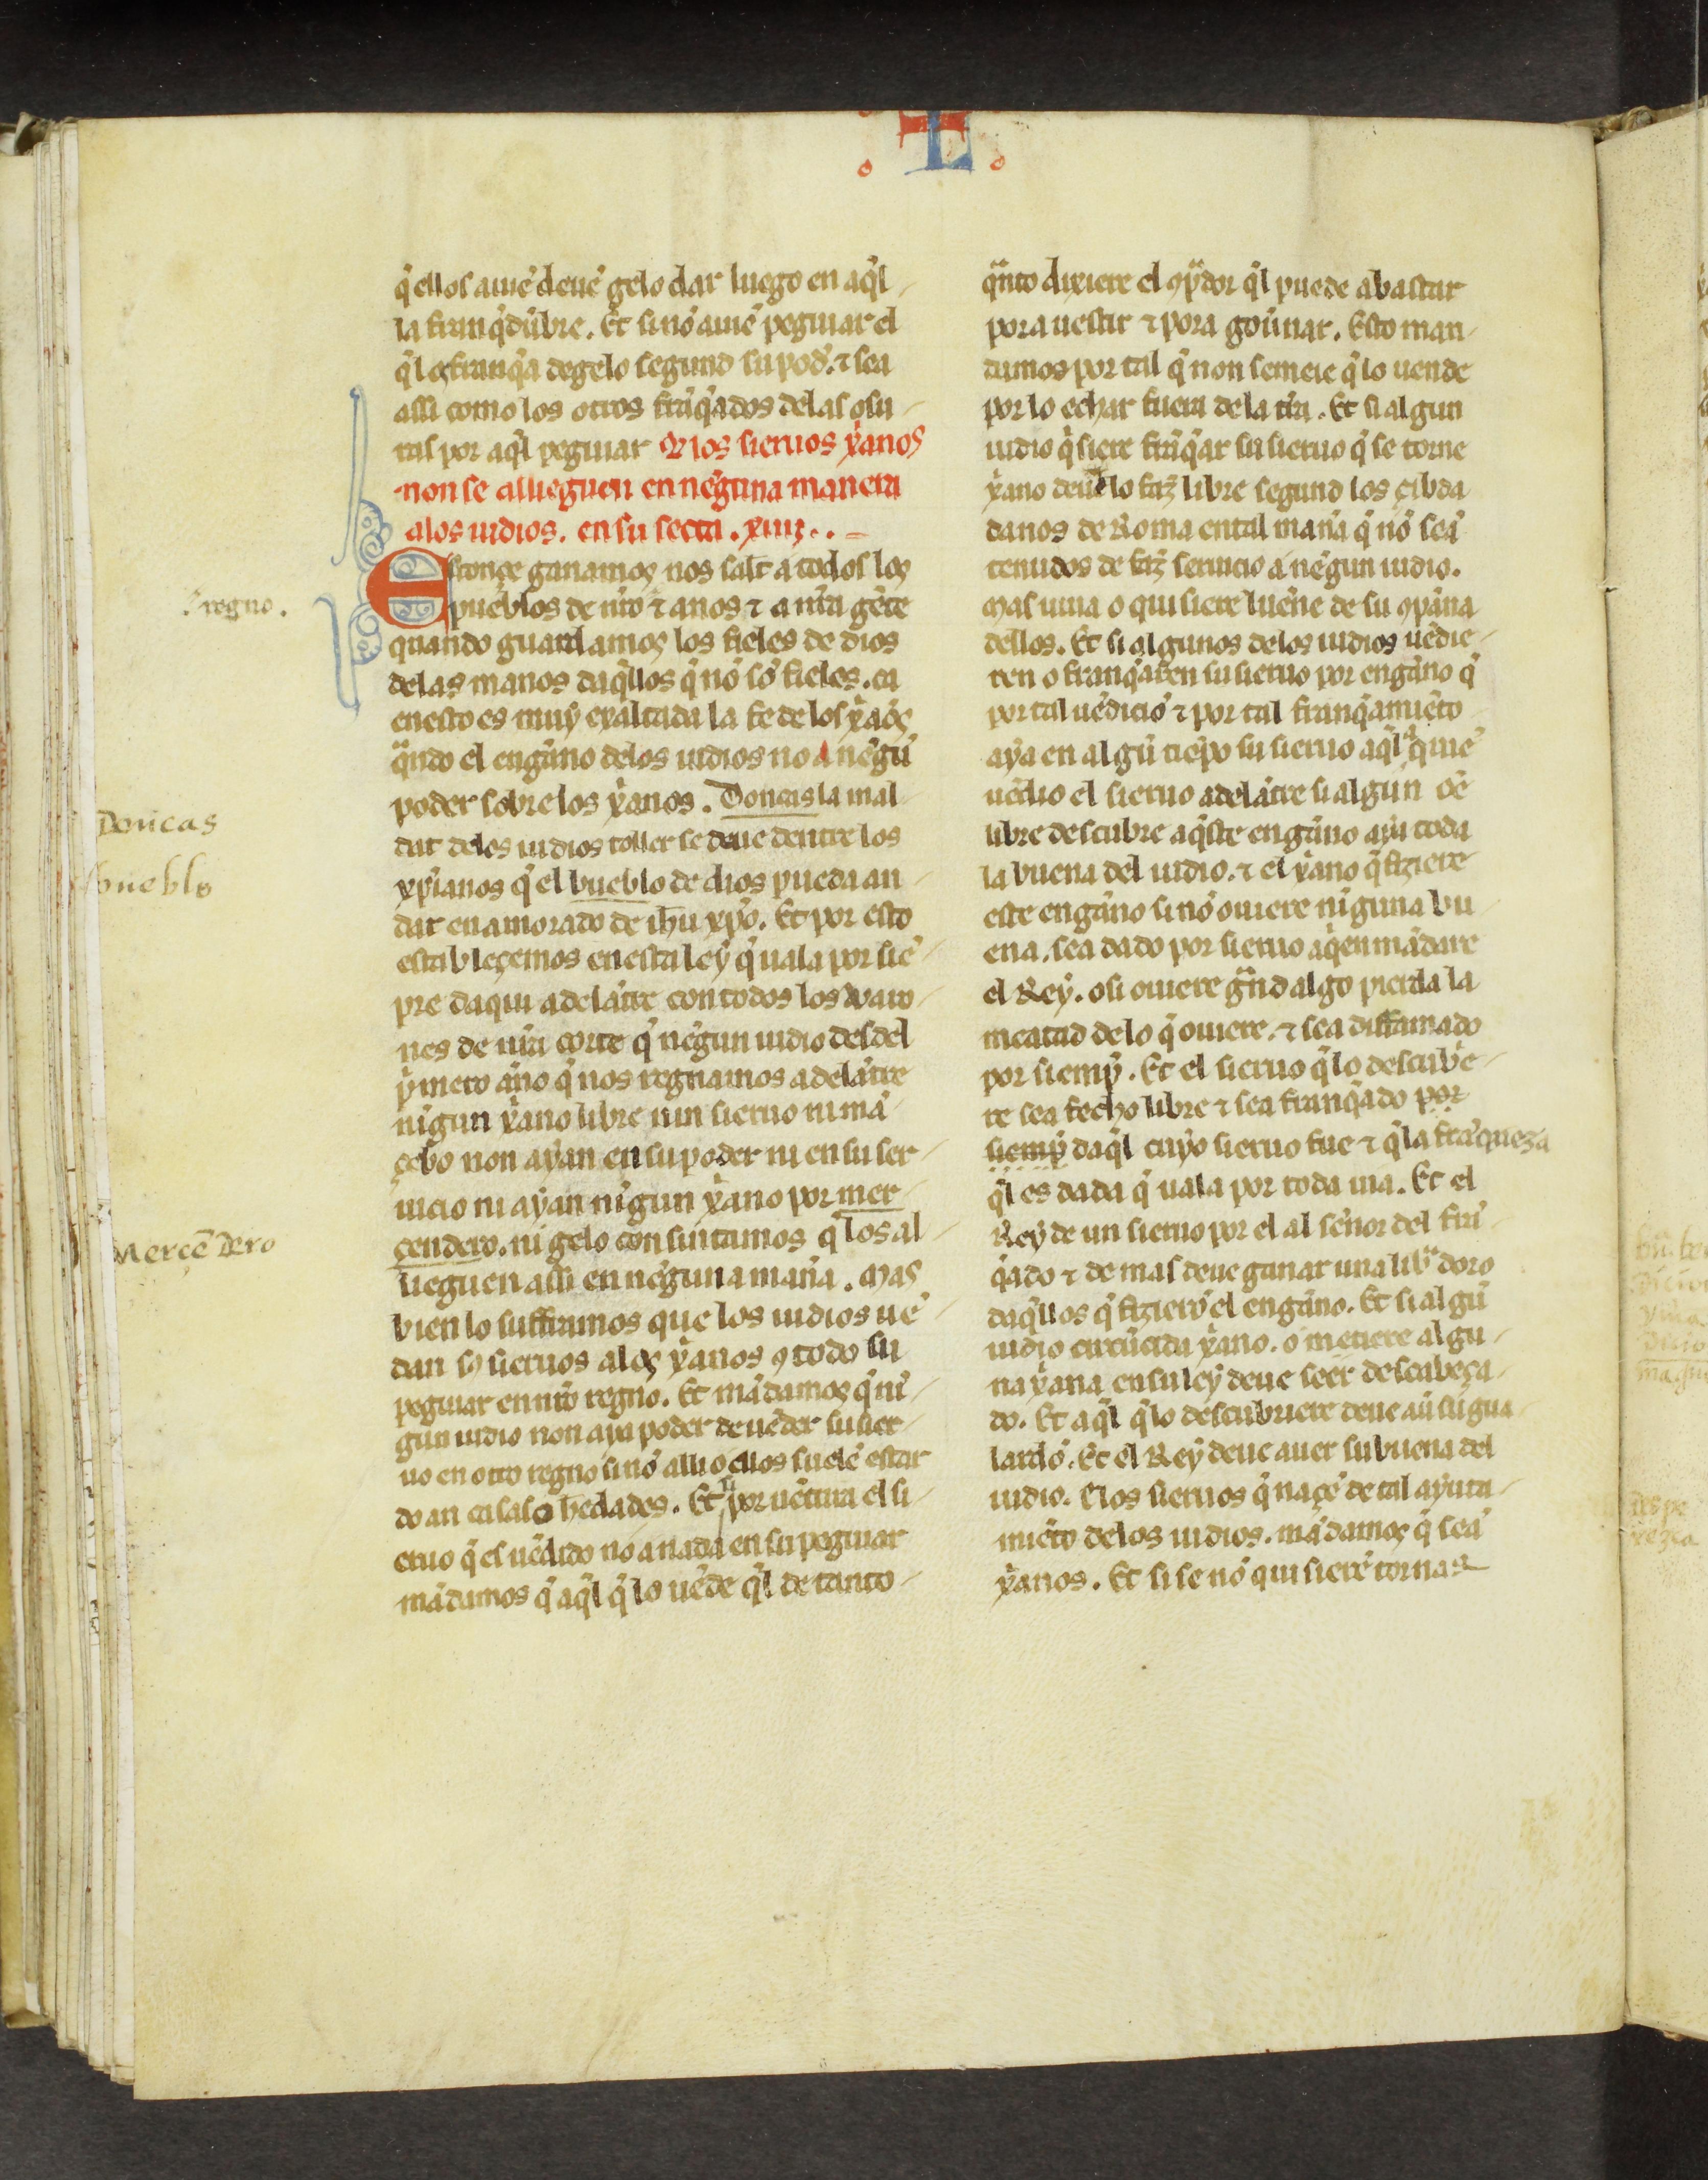 L
q̃ ellos auiẽ deuẽ gelo dar luego en aq̃l
la franq̃dũbre. Et si nõ auiẽ pegũiar el
q̃ les franq̃a degelo segund su poder. ⁊ sea
assi como los otros frãq̃ados de las osu
ras por aq̃l peguiar Q̃ los sieruos xp̃anos
non se allueguen en neguna manera
a los iudios. en su secta. xiiij..
Estonçe ganamos nos salut a todos los
pueblos de nr̃o ⁊ a nos ⁊ a nr̃a gẽte
quando guardamos los fieles de dios
de las manos daq̃llos q̃ nõ sõ fieles. ca
en esto es muy exaltada la fe de los xp̃aõs
q̃ndo el engãno delos iudios no a negũ
poder sobre los xp̃anos. Doncas la mal
dat delos iudios toller se deue dentre los
xp̃ianos q̃ el bueblo de dios pueda an
dar enamorado de ih̃u xp̃o. Et por esto
establecemos en esta ley q̃ uala por siẽ
pre daqui adelãtre con todos los uaro
nes de nr̃a corte q̃ negun iudio desdel
p̃mero ãno q̃ nos regnamos adelãtre
nĩgun xp̃ano libre nin sieruo ni mã
çebo non ayan en su poder ni en su ser
uicio ni ayan nĩgun xp̃ano por mer
çendero. ni gelo consintamos q̃ los al
lueguen assi en neguna mañа. Mas
bien lo sufframos que los iudios uẽ
dan sos sieruos a los xp̃anos ꝯ todo su
peguiar en nr̃o regno. Et mãdamos q̃ nĩ
gun iudio non aya poder de uẽder su sier
uo en otro regno si nõ alli o ellos suelẽ estar
do an casas o hedades. Et si por uẽtura el si
eruo q̃ es uẽdido nõ a nada en su peguiar
mãdamos q̃ aq̃l q̃ lo uẽde q̃l de tanto
regno.
Doncas
bueblo
Mercẽdero
q̃nto dixiere el ꝯp̃dor q̃l puede abastar
pora uestir ⁊ pora gouñar. Esto man
damos por tal q̃ non semeie q̃ lo uende
por lo echar fuera de la tr̃a. Et si algun
iudio q̃siere frãq̃ar su sieruo q̃ se torne
xp̃ano deue lo faz̃ libre segund los çibda
danos de Roma en tal mañа q̃ nõ seã
tenudos de faz̃ seruicio a negun iudio.
Mas uiua o quisiere lueñe de su ꝯpãna
dellos. Et si algunos delos iudios uẽdie
ren o franq̃aren su sieruo por engãno q̃
por tal uẽdiciõ ⁊ por tal franq̃amiẽto
aya en algũ tiẽpo su sieruo aq̃l a quiẽ
uẽdio el sieruo adelãtre si algun õe
libre descubre aq̃ste engãno aya toda
la buena del iudio. ⁊ el xp̃ano q̃ fiziere
este engãno si nõ ouiere nĩguna bu
ena. sea dado por sieruo a q̃en mãdare
el Rey. o si ouiere grãd algo pierda la
meatad de lo q̃ ouiere. ⁊ sea diffamado
por siemp̃. Et el sieruo q̃ lo descubrie
re sea fecho libre ⁊ sea franq̃ado por
siemp̃ daq̃l cuyo sieruo fue ⁊ q̃ la frãqueza
q̃l es dada q̃ uala por toda uia. Et el
Rey de un sieruo por el al señor del frã
q̃ado ⁊ de mas deue ganar una libra doro
daq̃llos q̃ fizierõ el engãno. Et si algũ
iudio circũcida xp̃ano. o metiere algu
na xp̃ana en su ley deue seer descabeça
do. Et aq̃l q̃ lo descubriere deue aũ su gua
lardõ. Et el Rey deue auer su buena del
iudio. E los sieruos q̃ naçẽ de tal ayunta
miẽto de los iudios. mãdamos q̃ seã
xp̃anos. Et si se nõ quisierẽ tornar